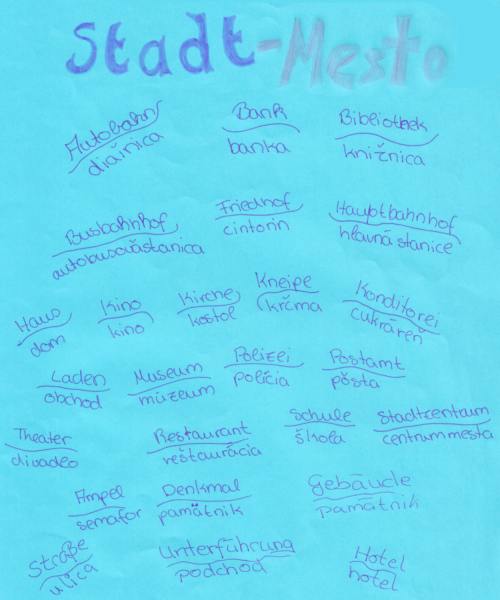 Stadt-Mesto
Autobahn
diaľnica
Bank
banka
Bibliothek
knižnica
Busbahnhof
autobusová stanica
Friedhof
cintorín
Hauptbahnhof
hlavná stanice
Haus
dom
Kino
kino
Kirche
kostol
Kneipe
krčma
Konditorei
cukráreň
Laden
obchod
Museum
múzeum
Polizei
polícia
Postamt
pošta
Theater
divadlo
Restaurant
reštaurácia
Schule
škola
Stadtzentrum
centrum mesta
Ampel
semafor
Denkmal
pamätník
Gebäude
pamätník
Straße
ulica
Unterführung
podchod
Hotel
hotel